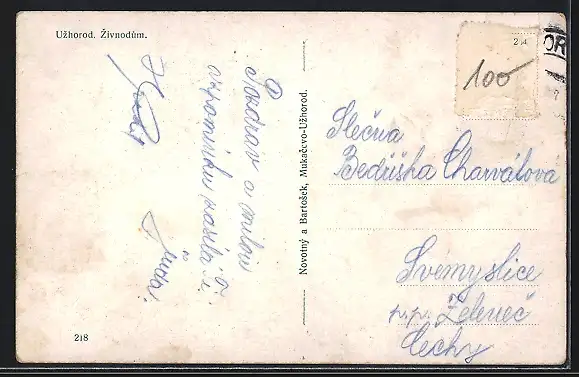 Užhorod. Živnodům.
Pozdrav a milou
vzpomínku zasílá Ti
Novotný a Bartošek, Mukačevo-Užhorod.
218
100
Slečna
Bedřiška Charvátová
Svemyslice
p.p. Zeleneč
Čechy